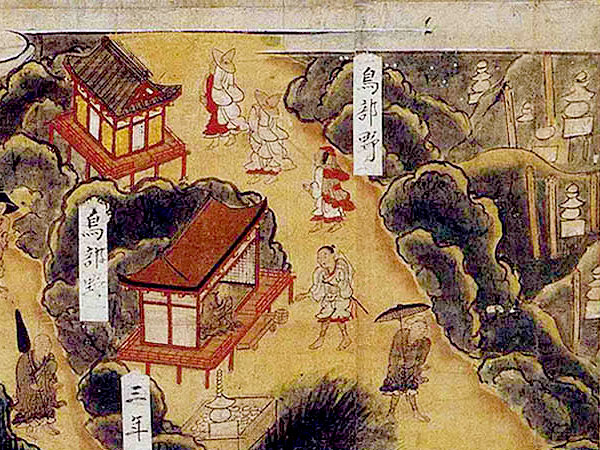 鳥部野
鳥部野
三年